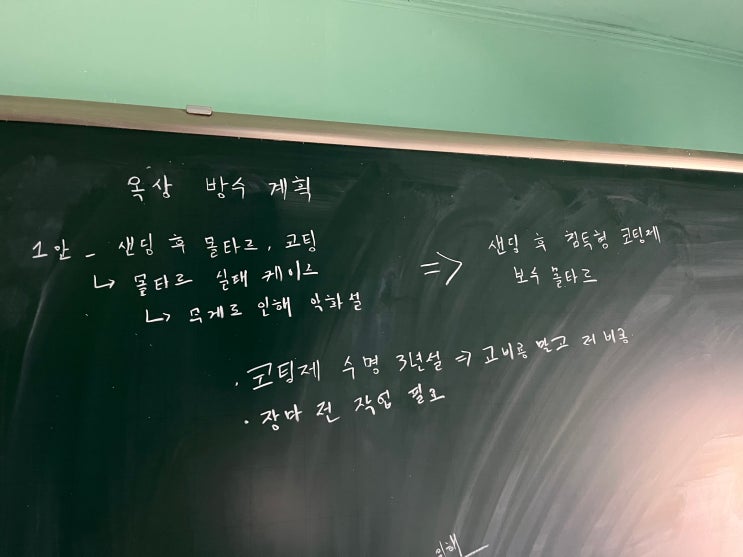 옥상 방수 계획
1안 - 샌딩 후 몰타르, 코팅
↳ 몰타르 실태 케이스
↳ 무게로 인해 악화설
=> 샌딩 후 침득형 코팅제
보수 몰타르
· 코팅제 수명 3년설 => 고비용 말고 저비용
· 장마 전 작업 필요
위해